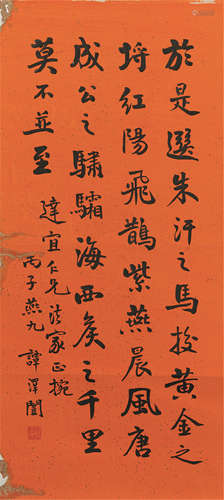 於是選朱汗之馬挍黃金之
埒紅陽飛鵲紫燕晨風唐
成公之驌驦海西矦之千里
莫不並至
達宜仁兄法家正捥
丙子燕九 譚澤闓